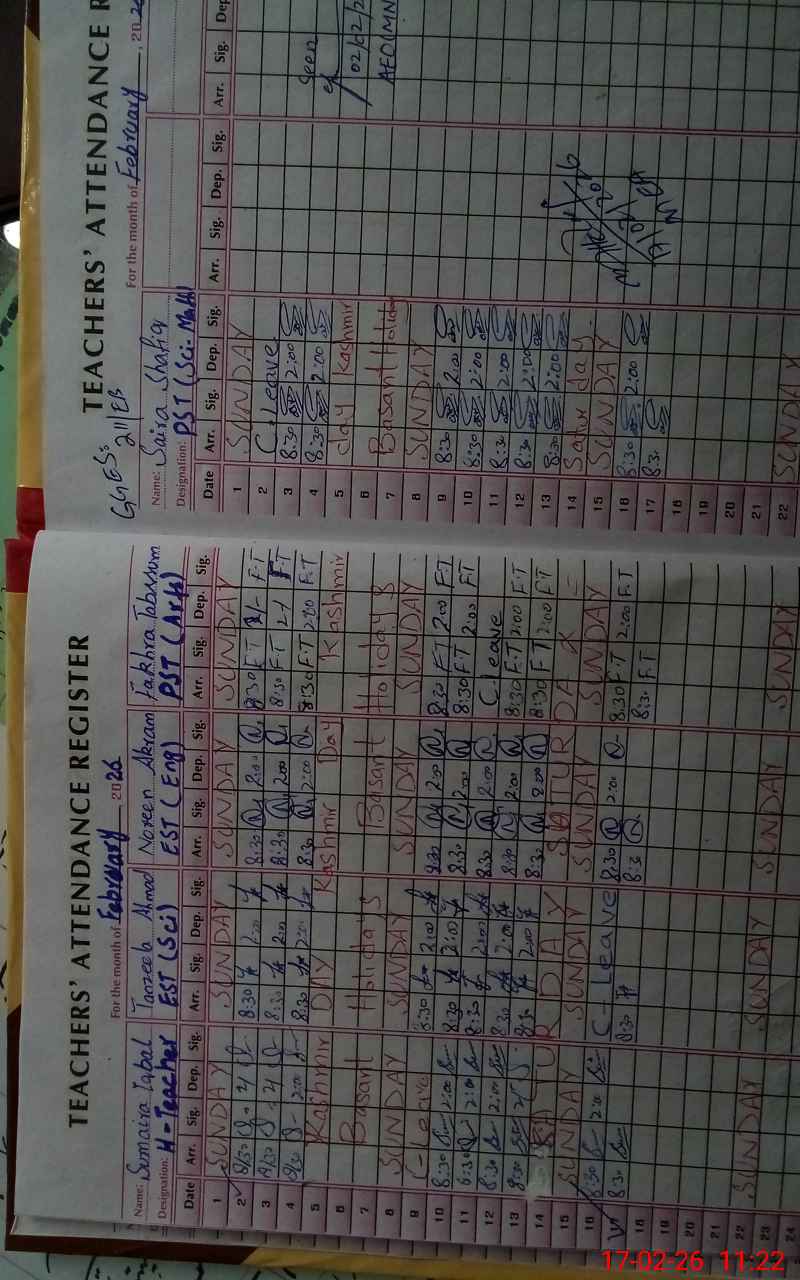 TEACHERS' ATTENDANCE REGISTER
For the month of February, 2026
Name: Sumaira Iqbal Tanzeela Ahmad Noreen Akram Fakhra Tabassum
Designation: H-Teacher EST (Sci) EST (Eng) PST (Arts)
Date Arr. Sig. Dep. Sig. Arr. Sig. Dep. Sig. Arr. Sig. Dep. Sig. Arr. Sig. Dep. Sig.
1 SUNDAY SUNDAY SUNDAY SUNDAY
2 8:30 2:00 8:30 2:00 8:30 F.T F.T
3 8:30 2:00 8:30 2:00 8:30 F.T F.T
4 8:30 2:00 8:30 2:00 8:30 2:00 8:30 F.T 2:00 F.T
5 Kashmir DAY Kashmir Day Kashmir
6
7 Basant Holidays Basant Holidays
8 SUNDAY SUNDAY SUNDAY SUNDAY
9 C-Leave 8:30 2:00 8:30 2:00 8:30 F.T 2:00 F.T
10 8:30 2:00 8:30 2:00 8:30 2:00 8:30 F.T 2:00 F.T
11 8:30 2:00 8:30 2:00 8:30 2:00 C.Leave
12 8:30 2:00 8:30 2:00 8:30 2:00 8:30 F.T 2:00 F.T
13 8:30 8:30 2:00 8:30 2:00 8:30 F.T 2:00 F.T
14 SATURDAY SATURDAY
15 SUNDAY SUNDAY SUNDAY SUNDAY
16 8:30 2:00 C-Leave 8:30 2:00 8:30 F.T 2:00 F.T
17 8:30 8:30 8:3 8:30 F.T
18
19
20
21
22 SUNDAY SUNDAY SUNDAY SUNDAY
23
24
GGES:
211 EB
TEACHERS' ATTENDANCE R
For the month of February, 202
Name: Saira Shafiq
Designation: PST (Sci-Math)
Date Arr. Sig. Dep. Sig. Arr. Sig. Dep. Sig. Arr. Sig. Dep
1 SUNDAY
2 C.Leave
3 8:30 2:00
4 8:30 2:00
5 day Kashmir
6
7 Basant Holiday
8 SUNDAY
9 8:30 2:00
10 8:30 2:00
11 8:30 2:00
12 8:30 2:00
13 8:30 2:00
14 Satur day
15 SUNDAY
16 8:30 2:00
17 8:3
18
19
20
21
22 SUNDAY
Seen
02/02/2
AEO(MN
17-02-26 11:22